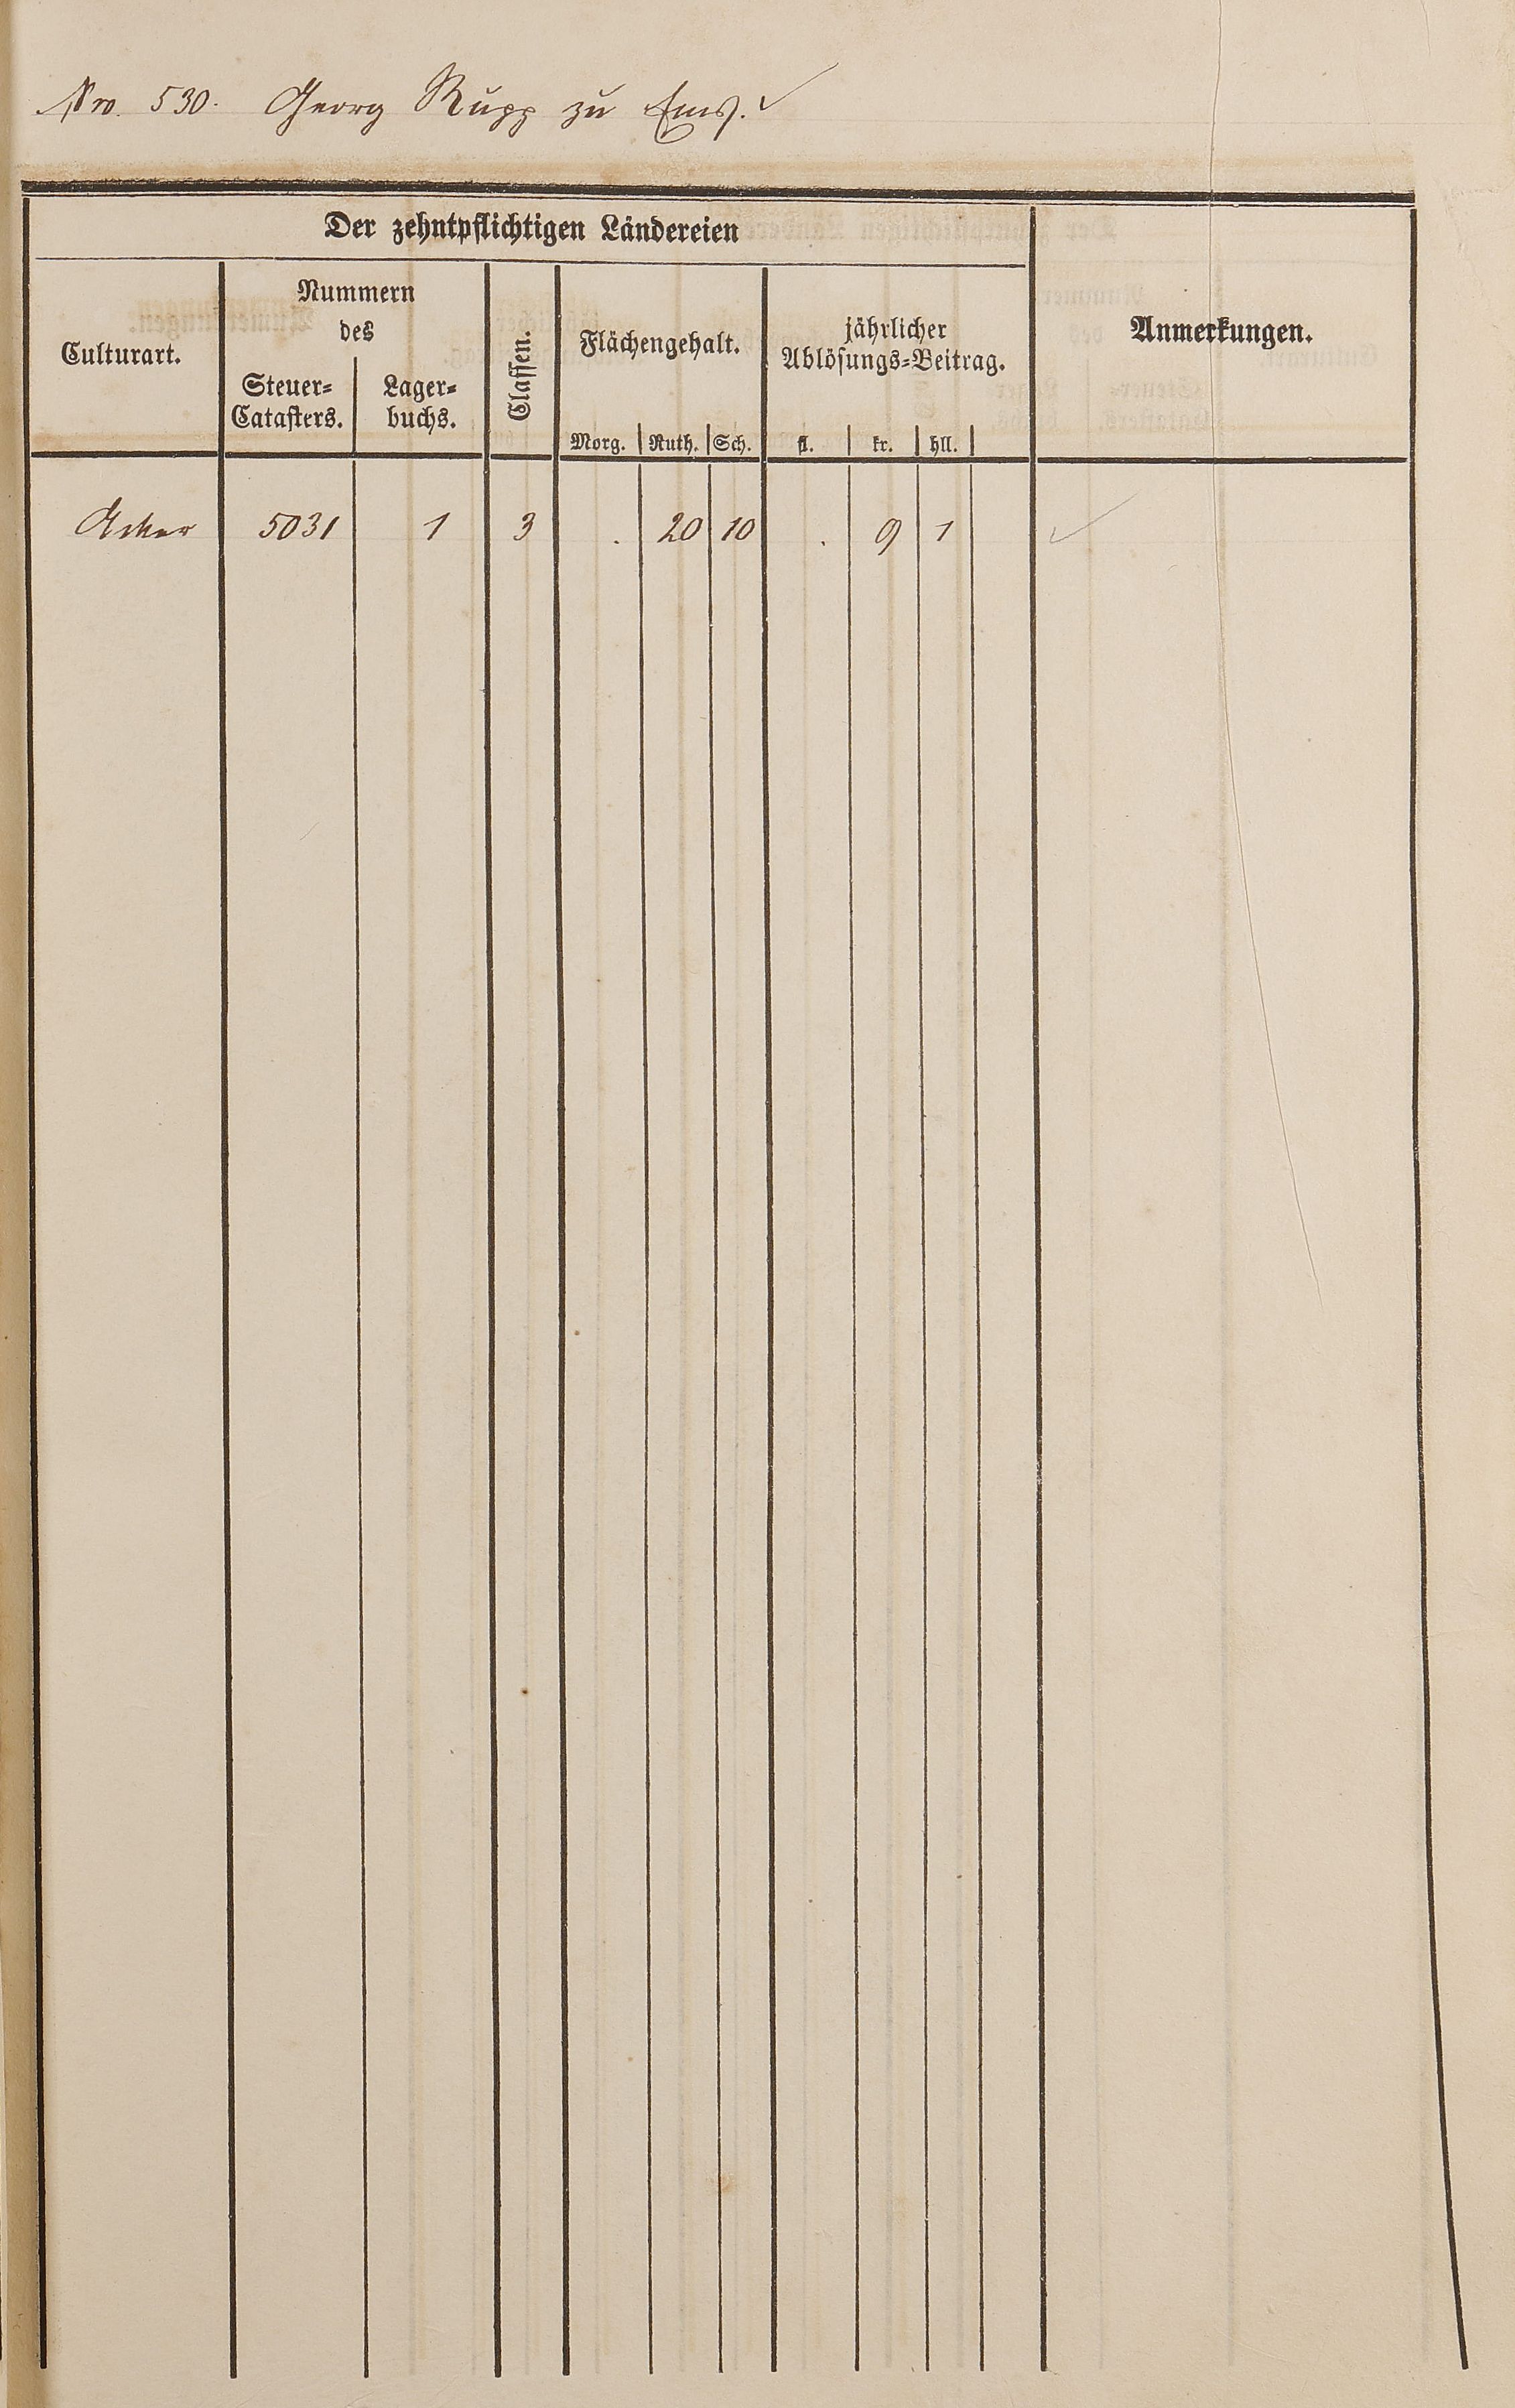 Nro. 530. Georg Rupp zu Ems. ✓
Der zehntpflichtigen Ländereien
Culturart.
Nummern
des
Steuer-
Catasters.
Lager-
buchs.
Classen.
Flächengehalt.
Morg. Ruth. Sch.
jährlicher
Ablösungs-Beitrag.
fl. kr. hll.
Anmerkungen.
Acker 5031 1 3 . 20 10 . 9 1 ✓